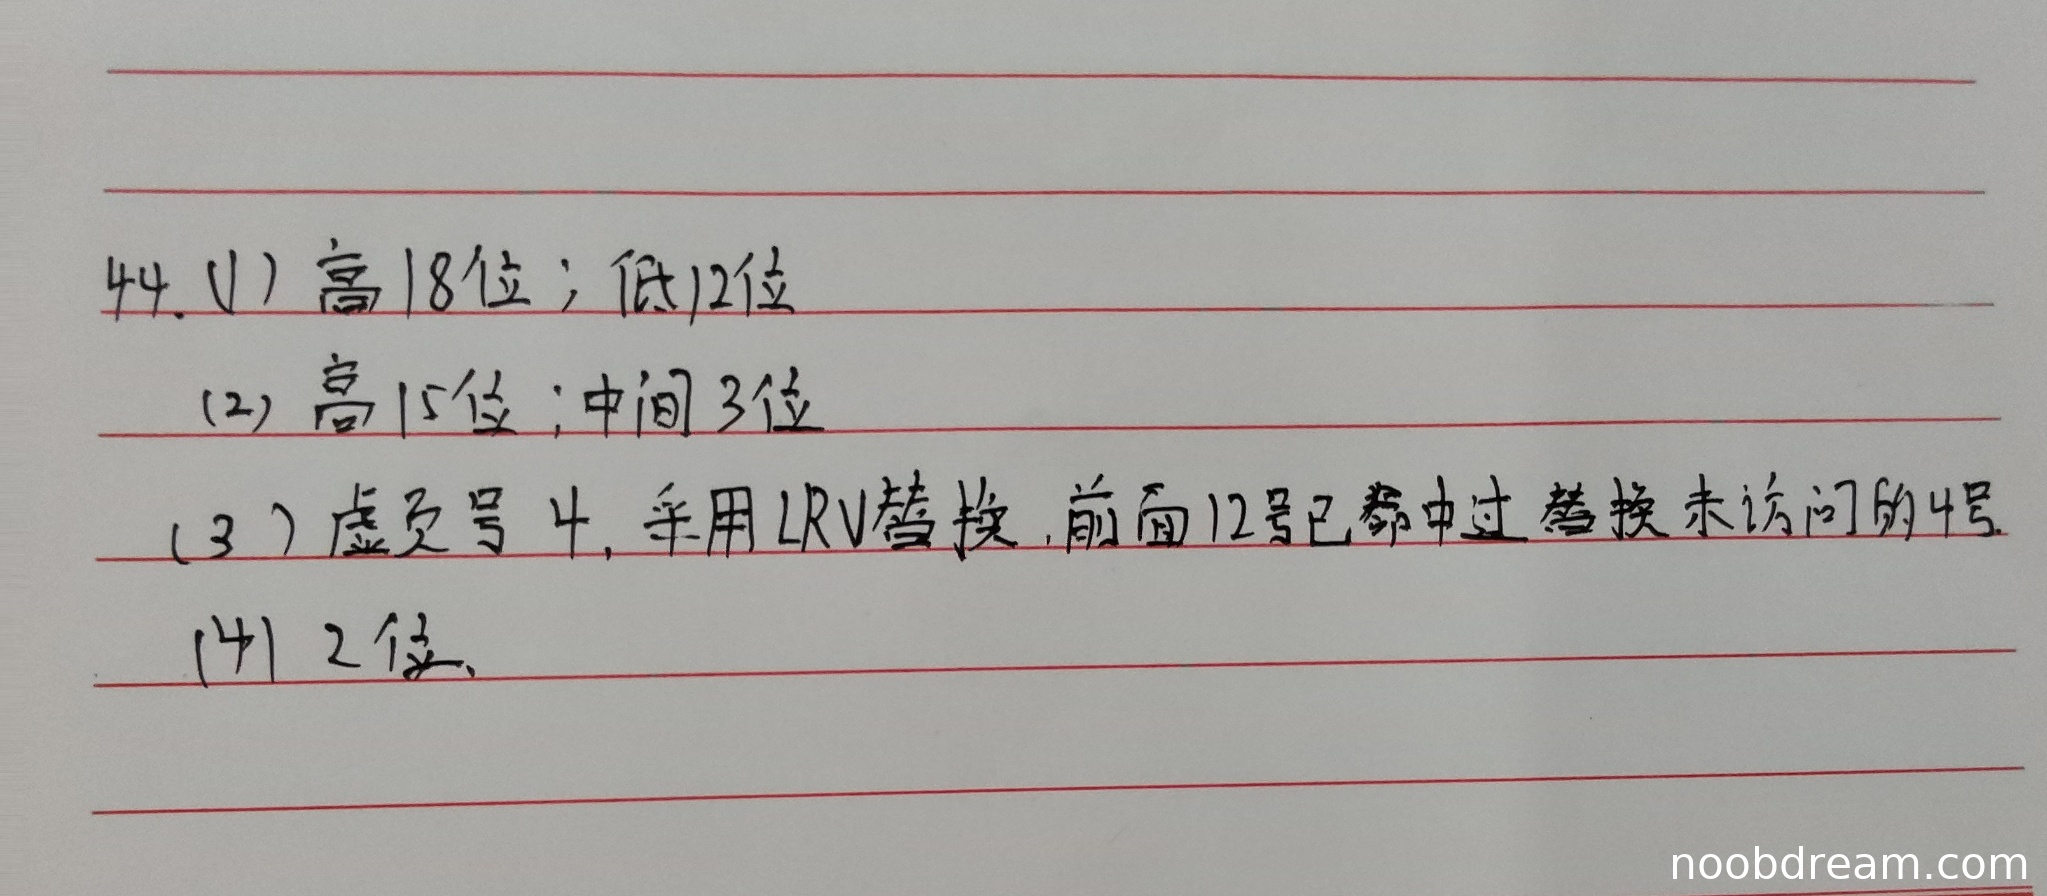 44.(1) 高18位；低12位
(2) 高15位；中间3位
(3) 虚页号 4, 采用LRU替换.前面12号已命中过替换未访问的4号.
(4) 2位.
noobdream.com